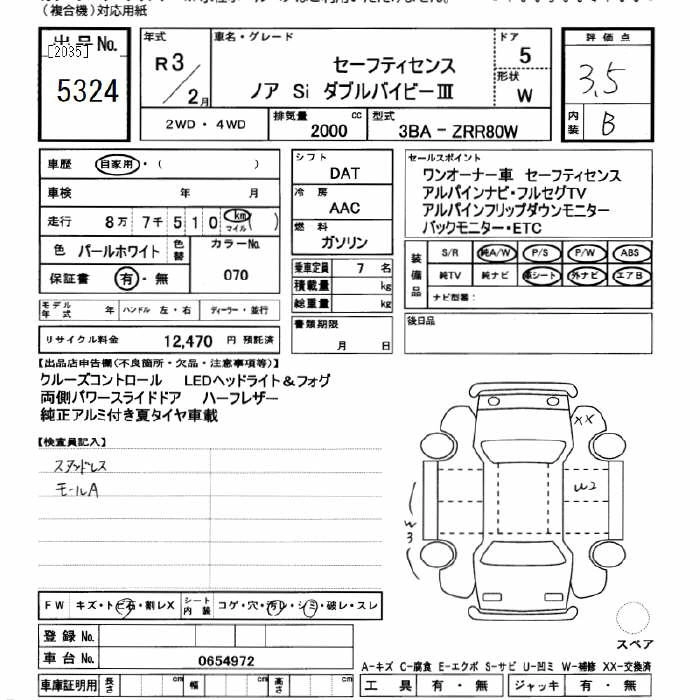 （複合機）対応用紙
出品No.
[2035]
5324
年式
R3/2月
車名・グレード
セーフティセンス
ノア Si ダブルバイビーⅢ
ドア
5
形状
W
評価点
3.5
内装
B
2WD・4WD
排気量
2000
cc
型式
3BA - ZRR80W
車歴 自家用・( )
車検 年 月
走行 8万 7千 5 1 0 km マイル ( )
色 パールホワイト 色替 カラーNo.
070
保証書 有・無
シフト
DAT
冷房
AAC
燃料
ガソリン
乗車定員 7 名
積載量 kg
総重量 kg
セールスポイント
ワンオーナー車 セーフティセンス
アルパインナビ・フルセグTV
アルパインフリップダウンモニター
バックモニター・ETC
装備品
S/R 純A/W P/S P/W ABS
純TV 純ナビ 革シート 外ナビ エアB
ナビ型番：
モデル年式 年 ハンドル 左・右 ディーラー・並行
リサイクル料金 12,470 円 預託済
書類期限
月 日
後日品
【出品店申告欄(不良箇所・欠品・注意事項等)】
クルーズコントロール LEDヘッドライト＆フォグ
両側パワースライドドア ハーフレザー
純正アルミ付き夏タイヤ車載
【検査員記入】
スタッドレス
モールA
XX
W2
W3
FW キズ・トビ石・割レX シート内装 コゲ・穴・汚レ・シミ・破レ・スレ
登録No.
車台No. 0654972
スペア
A-キズ C-腐食 E-エクボ S-サビ U-凹ミ W-補修 XX-交換済
車庫証明用 長さ cm 幅 cm 高さ cm
工具 有・無 ジャッキ 有・無